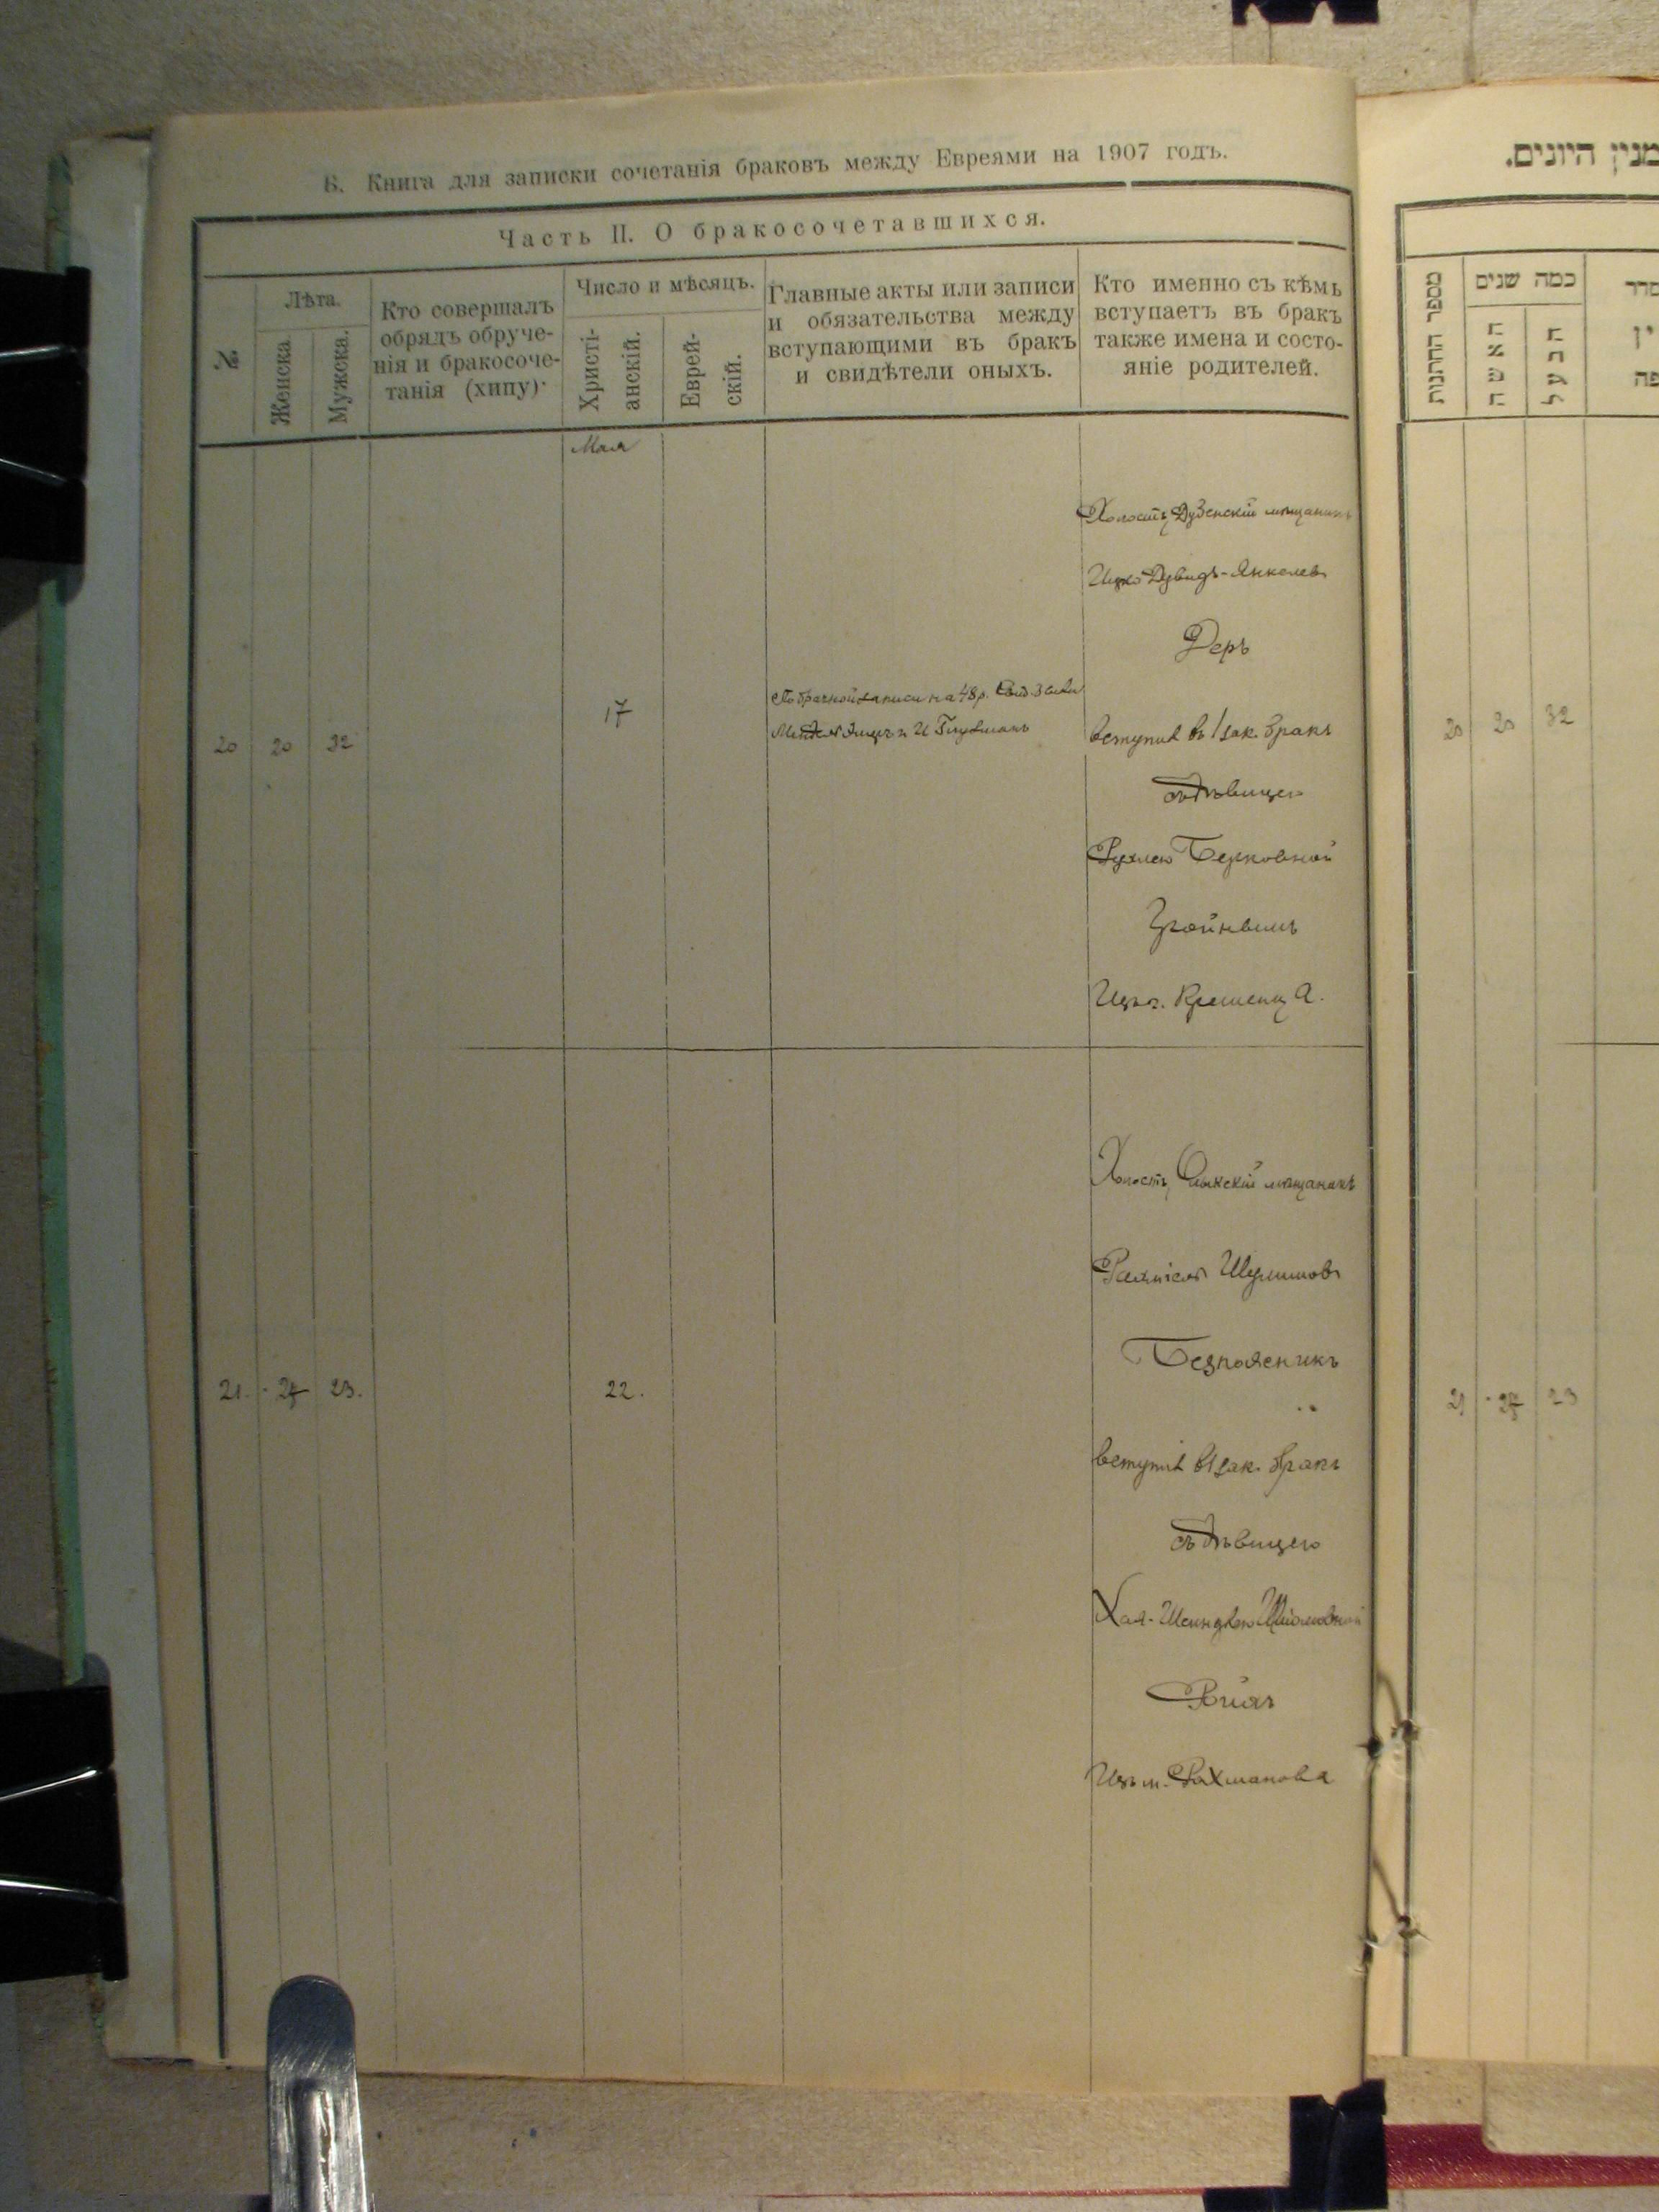 Б. Книга для записки сочетанія браковъ между Евреями на 1907 годъ.
Часть II. О бракосочетавшихся.
№
Лѣта.
Женска.
Мужска.
Кто совершалъ
обрядъ обруче-
нія и бракосоче-
танія (хипу).
Число и мѣсяцъ.
Христі-
анскій.
Еврей-
скій.
Главные акты или записи
и обязательства между
вступающими въ бракъ
и свидѣтели оныхъ.
Кто именно съ кѣмъ
вступаетъ въ бракъ
также имена и состо-
яніе родителей.
Мая
20 20 32
17
По брачной записи на 48 р.
Холостъ, Дубенскій мѣщанинъ
Ицко Дувидъ-Янкелевъ
Деръ
вступилъ въ 1 зак. бракъ
съ дѣвицею
Рухлею Берковной
Ицъ г. Кременца.
21. 23.
22.
Холостъ, мѣщанинъ
Шулимовъ
Безпоясникъ
вступилъ въ 1 зак. бракъ
съ дѣвицею
Хая-Шейндлею
Ройзъ
Изъ м. Рахманова
מנין היונים.
מספר החתונות
כמה שנים
האשה
הבעל
20 20 32
21 23